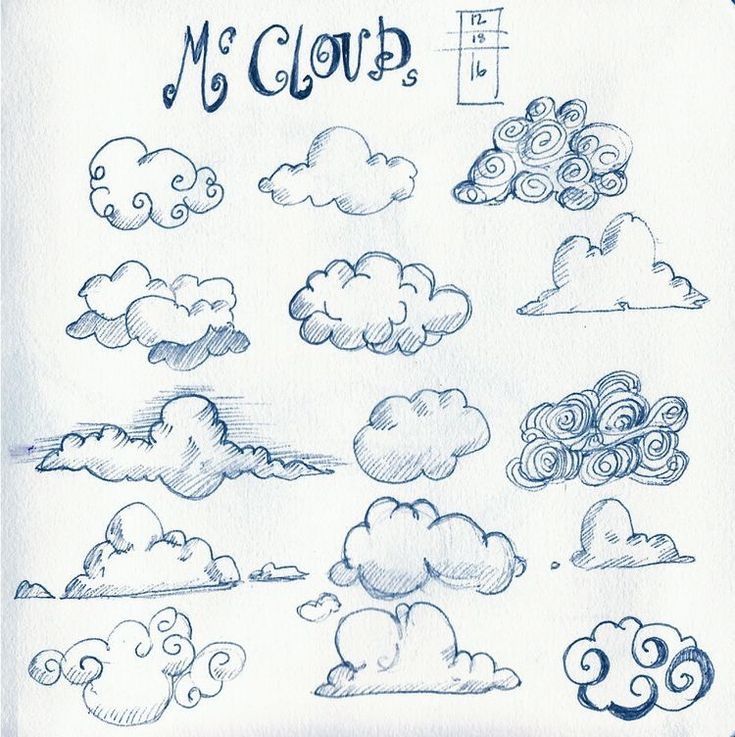 Mc CLOUDs
12
18
16